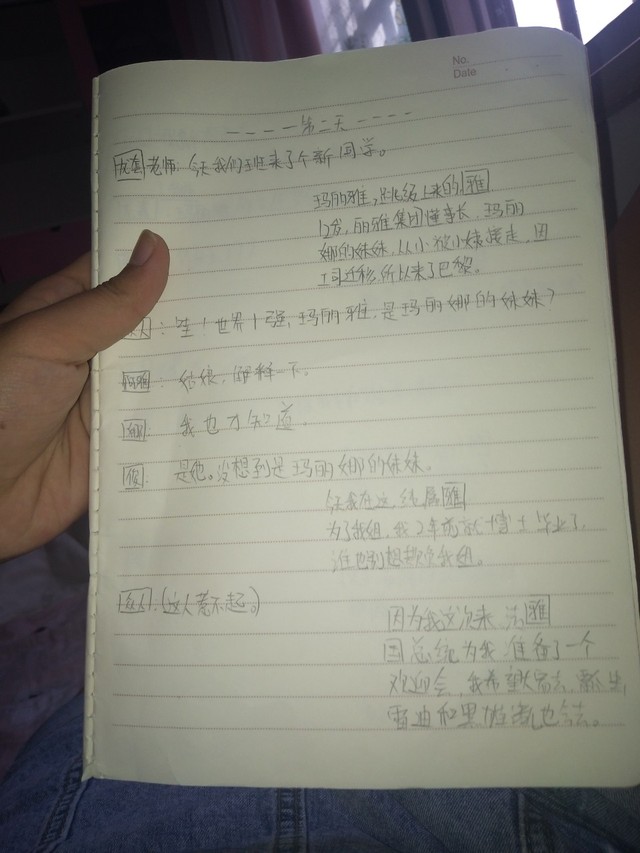 No.
Date
- - - - 第二天 - - - -
龙套 老师: 今天我们班来了个新同学。
玛丽雅,是跳级上来的 雅
12岁,丽雅集团懂事长,玛丽
娜的妹妹,从小被小姨接走,因
公司迁移,所以来了巴黎。
众人: 哇!世界十强,玛丽雅,是玛丽娜的妹妹?
阿雅: 姑娘,解释一下。
娜: 我也才知道
俊: 是她。没想到是玛丽娜的妹妹。
今我在这,纯属 雅
为了我姐,我2年前就博士毕业了,
谁也别想欺负我姐。
众人: (这人惹不起。)
因为我这次来,法 雅
国总统为我准备了一个
欢迎会,我希望大家去,
雷迪和黑猫诺儿也会去。